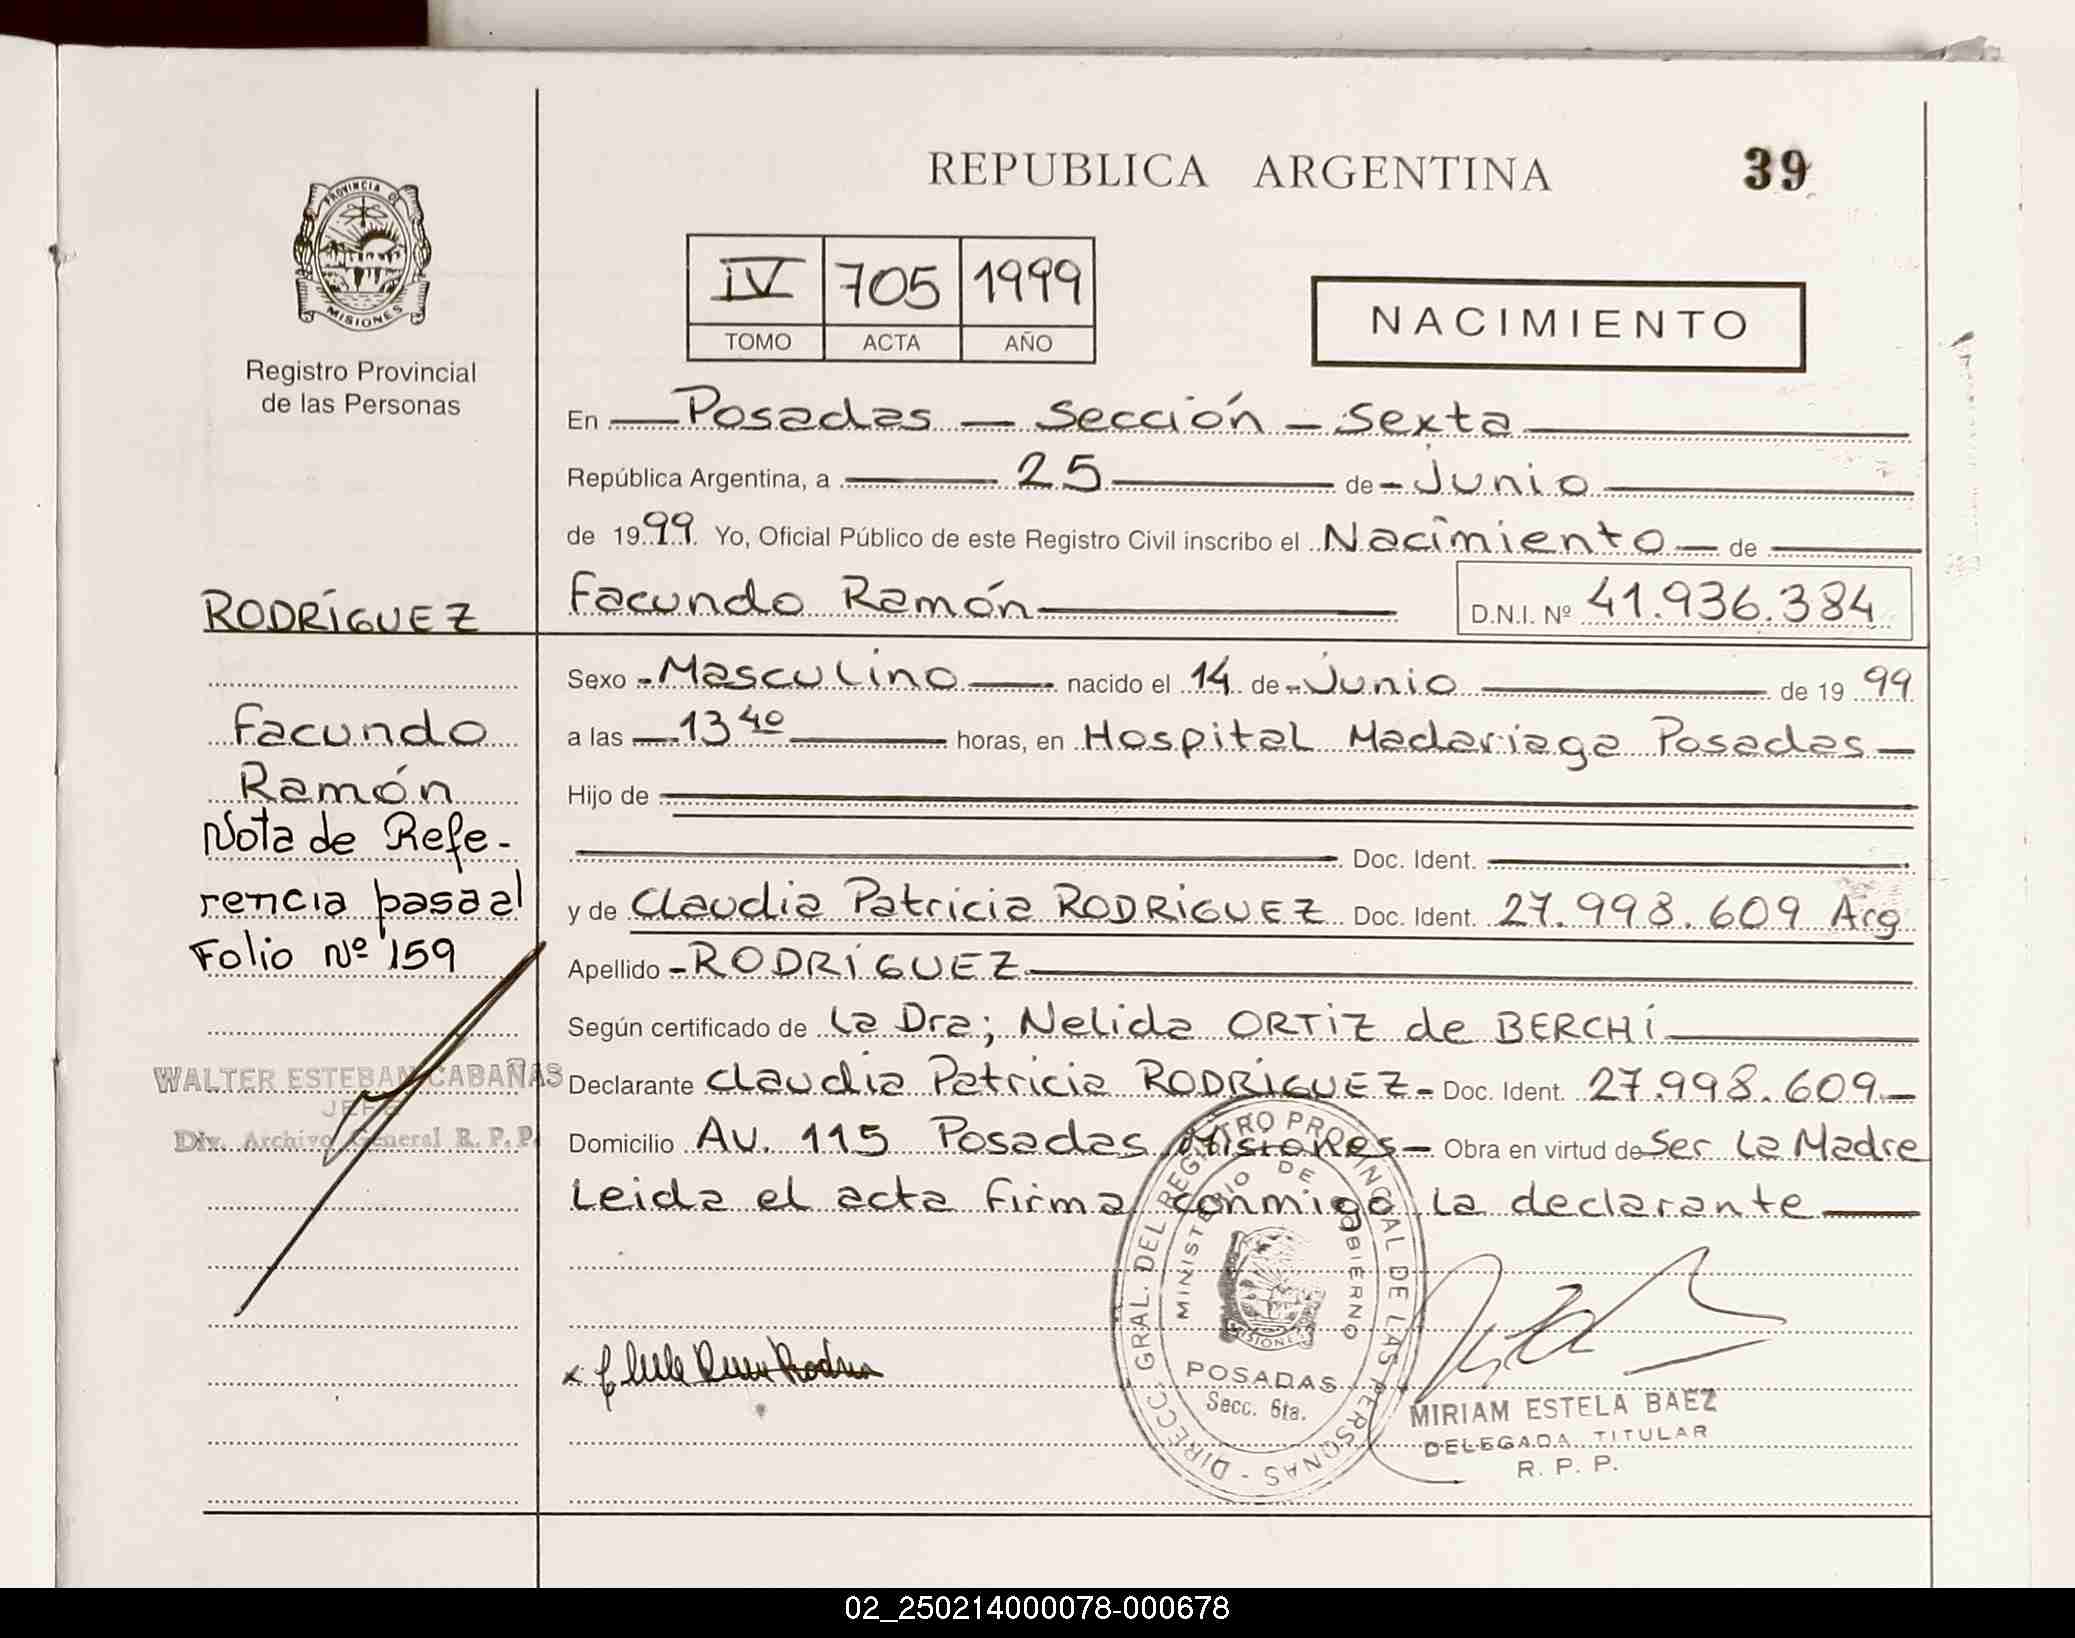 REPUBLICA ARGENTINA
39
PROVINCIA DE
MISIONES
Registro Provincial
de las Personas
IV 705 1999
TOMO ACTA AÑO
NACIMIENTO
En Posadas - Sección - Sexta
República Argentina, a 25 de - Junio
de 1999 Yo, Oficial Público de este Registro Civil inscribo el Nacimiento - de
Facundo Ramón D.N.I. Nº 41.936.384
RODRÍGUEZ
Facundo
Ramón
Nota de Refe-
rencia pasa al
Folio Nº 159
WALTER ESTEBAN CABAÑAS
JEFE
Div. Archivo General R. P. P.
Sexo - Masculino - nacido el 14 de - Junio de 19 99
a las 13 40 horas, en Hospital Madariaga Posadas -
Hijo de
Doc. Ident.
y de Claudia Patricia RODRIGUEZ Doc. Ident. 27.998.609 Arg
Apellido - RODRÍGUEZ
Según certificado de La Dra; Nelida ORTIZ de BERCHI
Declarante Claudia Patricia RODRÍGUEZ - Doc. Ident. 27.998.609 -
Domicilio Av. 115 Posadas Misiones - Obra en virtud de Ser La Madre
Leida el acta firma conmigo La declarante
DIRECC. GRAL. DEL REGISTRO PROVINCIAL DE LAS PERSONAS -
MINISTERIO DE GOBIERNO
MISIONES
POSADAS
Secc. 6ta.
MIRIAM ESTELA BAEZ
DELEGADA TITULAR
R. P. P.
02_250214000078-000678